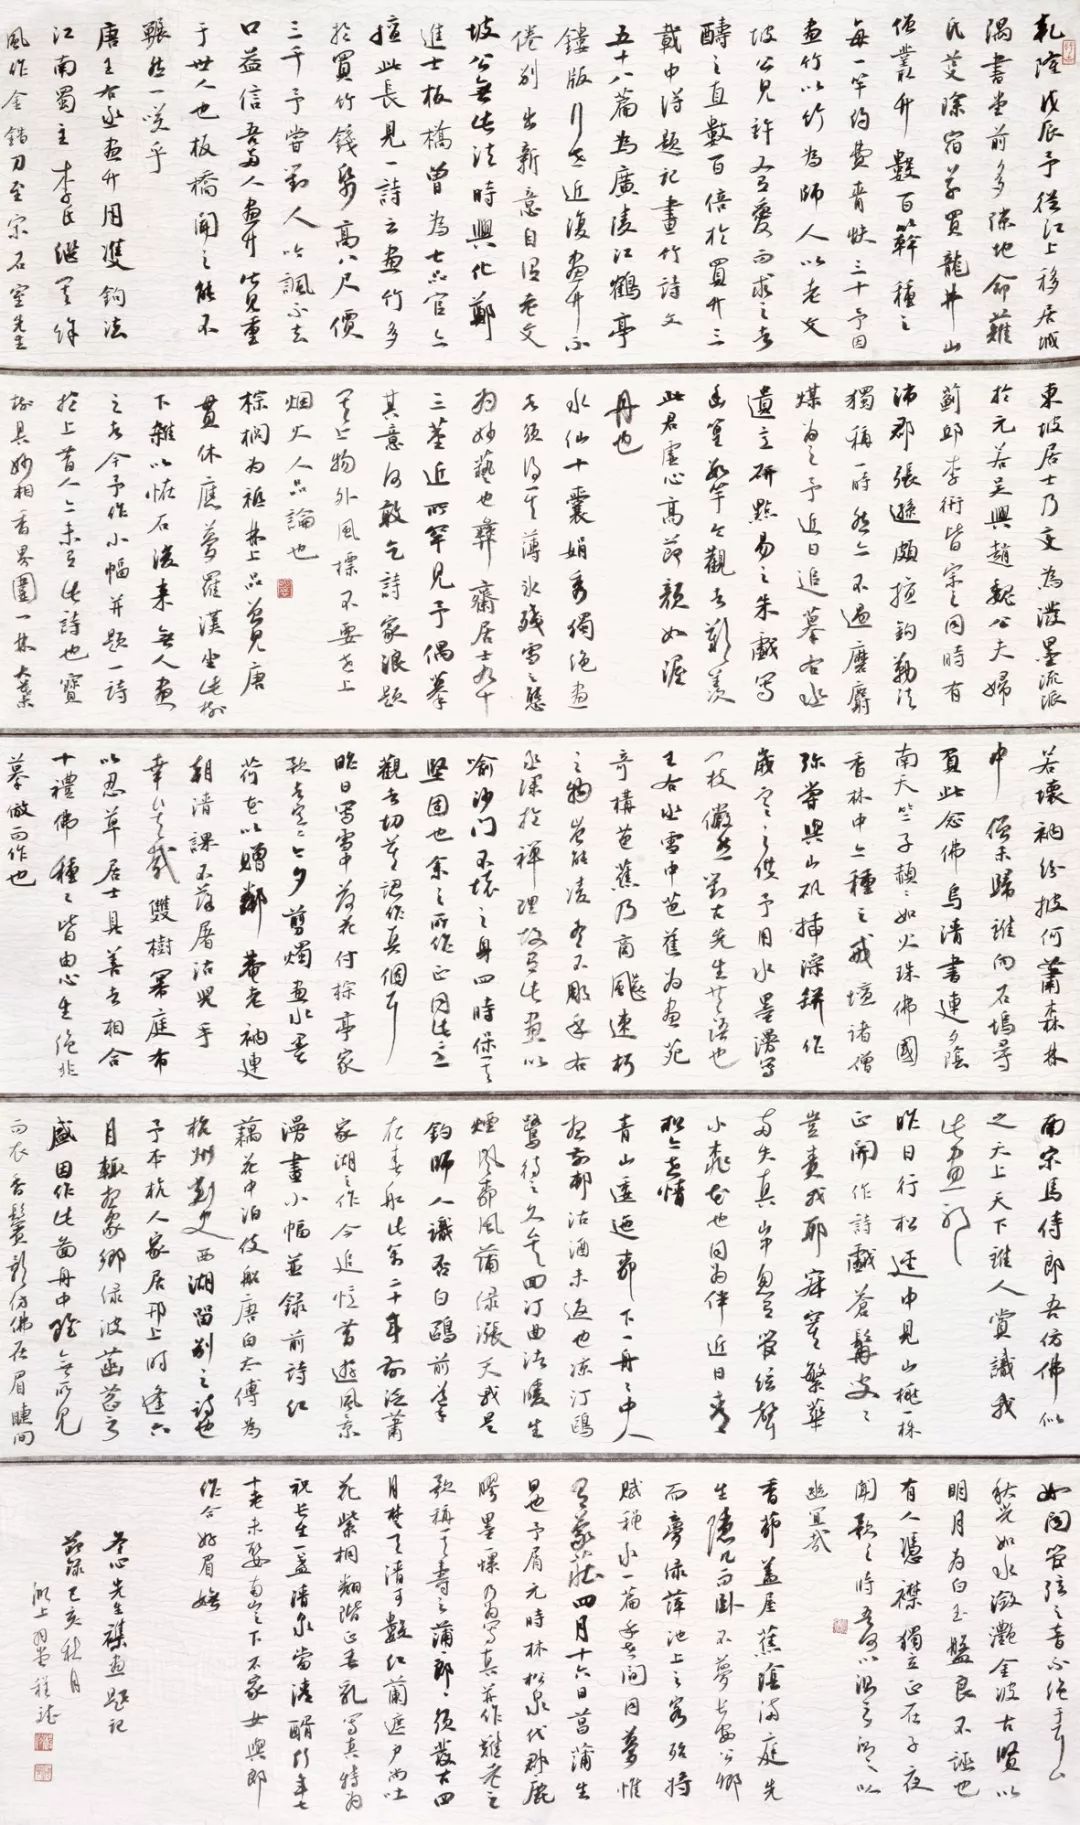 乾隆戊辰予從江上移居城
隅書堂前多隙地命薙
氏芟除宿草買龍井山
僧叢竹數百竿種之
每一竿約費青蚨三十予因
畫竹以竹為師人以老文
坡公見許又有愛而求之者
酬之直數百倍於買竹三
載中得題記畫竹詩文
五十八篇為廣陵江鶴亭
鏤版行世近復畫竹不
倦別出新意自謂老文
坡公無此法時興化鄭
進士板橋曾為七品官亦
擅此長見一詩云畫竹多
於買竹錢紙高八尺價
三千予嘗對人吟諷不去
口益信吾兩人畫竹皆見重
于世人也板橋聞之能不
囅然一笑乎
唐王右丞畫竹用雙鉤法
江南蜀主李氏繼其餘
風作金錯刀至宋石室先生
東坡居士乃文為潑墨流派
於元若吳興趙魏公夫婦
薊邱李衎皆宗之同時有
沛郡張遜頗擅鉤勒法
獨稱一時然亦不過麝
煤為之予近日追摹右丞
遺意研點易之朱戲寫
幽篁數竿令觀者歎羨
此君虛心高節顏如渥
丹也
水仙十囊娟秀獨絕畫
者須得其薄冰殘雪之態
為妙藝也彝齋居士九十
三莖近所罕見予偶摹
其意何敢乞詩家浪題
其上物外風標不要世上
烟火人品論也
棕櫚為祗林上品曾見唐
貫休應夢羅漢坐此樹
下雜以怪石後來無人畫
之者今予作小幅并題一詩
於上昔人亦未有此詩也寶
樹具妙相香界圍一林大葉
若壞衲紛披何蕭森林
中僧未歸誰向石塢尋
頁此念佛鳥清書連夕陰
南天竺子顆顆如火珠佛國
香林中亦種之戒壇諸僧
彌等與山礬插深缾作
歲寒之供予用水墨漫寫
一枝儼然對古先生共語也
王右丞雪中芭蕉為畫苑
奇構芭蕉乃商飆速朽
之物豈能凌冬不凋乎右
丞深於禪理故有此畫以
喻沙門不壞之身四時保其
堅固也余之所作正同此意
觀者切莫認作真個耳
昨日寫雪中荷花付棕亭家
歌者定定今夕剪燭畫水墨
荷花以贈鄰菴老衲連
朝清課不落屠沽兒手
幸矣哉雙樹罘庭布
以忍草居士具善者相合
十禮佛種種皆由心生絕非
摹倣而作也
南宗馬侍郎吾仿佛似
之天上天下誰人賞識我
此畫耶
昨日行松逕中見山桃一株
正開作詩戲蒼髯叟叟
豈責我耶寂寞繁華
兩失真米由忽有管絃聲
小桃花也同為伴近日青
松亦世情
青山逶迤郭下一舟舟中人
在前邨沽酒未返也涼汀鷗
鷺待之久矣回汀曲渚暖生
煙風郭風蒲綠漲天我是
釣師人識否白鷗前導
在春船此第二十年前泛蕭
家湖之作今追憶昔遊風景
漫畫小幅並錄前詩紅
藕花中泊妓船唐白太傅為
杭州刺史西湖留別之詩也
予本杭人家居邗上時逢六
月輒想家鄉綠波菡萏之
盛因作此圖舟中雖無所見
而衣香鬢影仿佛在眉睫間
如聞管絃之音不絕于耳也
秋光如水瀲灩金波古賢以
明月為白玉盤良不誣也
有人憑襟獨立正在子夜
聞歌之時吾何以謂之謂之以
幽夐哉
香茆蓋屋蕉陰滿庭先
生隱几而臥不夢長安公卿
而夢綠萍池上之客強持
賦秋水一篇乎世間同夢惟
有蒙莊四月十六日菖蒲生
日也予屑元時林松泉代郡鹿
膠墨一螺乃為寫真并作難老之
歌稱其壽之蒲郎蒲郎須髮古四
月楚天清可數紅蘭遮戶尚吐
花紫桐翻階正垂乳寫真特為
祝長生一盞清泉當清醑行年七
十老未娶南山之下不家女與郎
作合好眉嫵
冬心先生襍畫題記
節錄己亥秋月